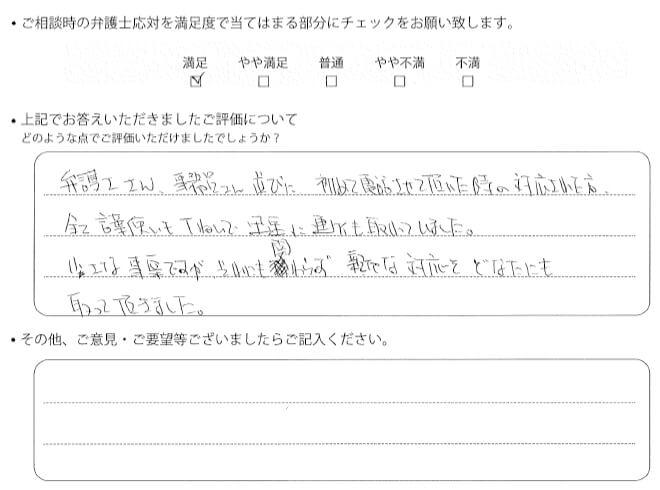 ・ご相談時の弁護士応対を満足度で当てはまる部分にチェックをお願い致します。
満足 やや満足 普通 やや不満 不満
・上記でお答えいただきましたご評価について
どのような点でご評価いただけましたでしょうか？
弁護士さん、事務員さん並びに 初めて電話させて頂いた時の対応された方、
全て言葉使いもていねいで 早急に連絡も取れてました。
な事案ですが それにも関わらず 親切な対応を どなたにも
取って頂きました。
・その他、ご意見・ご要望等ございましたらご記入ください。